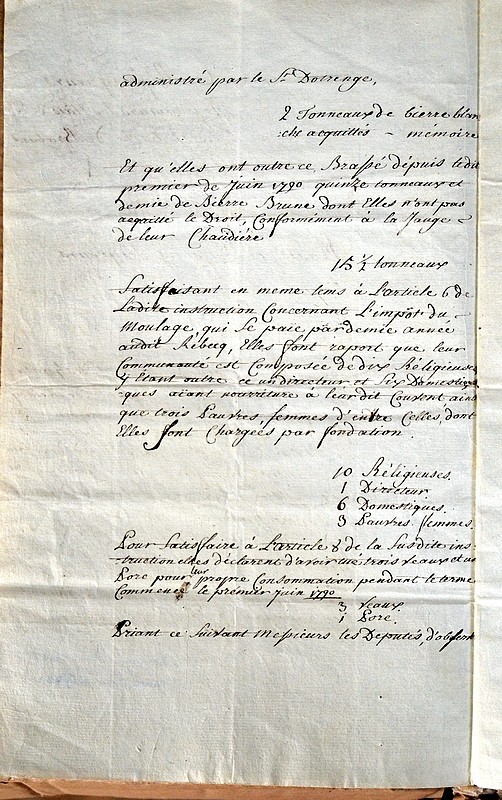 administré par le Sr Dotrenge,
2 Tonneaux de bierre blan
che acquittés - memoire
Et qu'elles ont outre ce, Brassé dépuis ledit
premier de Juin 1790 quinze tonneaux et
demie de Bierre Brune dont Elles n'ont pas
acquitté le Droit, Conformément à la Jauge -
de leur Chaudiére
15 1/2 tonneaux
Satisfaisant en meme tems à L'article 6 de
Ladite instruction Concernant L'impôt du -
Moulage, qui Se paie par demie année
audit Rébecq, Elles font raport que leur
Communauté est Composée de dix Réligieuses
y Etant outre ce un directeur et Six Domesti
ques aiant nourriture a leur dit Couvent ainsi
que trois Pauvres femmes d'entre Celles, dont
Elles sont Chargées par fondation.
10 Réligieuses.
1 Directeur.
6 Domestiques.
3 Pauvres femmes.
Pour Satisfaire à L'article 8 de la Susdite ins-
truction elles déclarent d'avoir tué trois veaux et un
Porc pour leur propre Consommation pendant le terme
Commencé le premier Juin 1790
3 veaux.
1 Porc.
Priant ce Suivant Messieurs les Deputés, d'observ